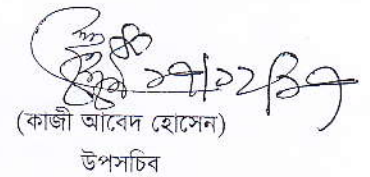 (কাজী আবেদ হোসেন)
উপসচিব